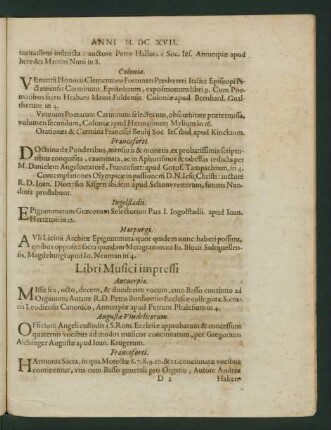 ANNI M. DC. XVII.
tutinatibus instructa: auctore Petro Halloix è Soc. Ies. Antuerpiæ apud
heredes Martini Nutii in 8.
Coloniæ.
Venantii Honorii Clementiani Fortunati Presbyteri Italici Episcopi Pi-
ctauiensis Carminum, Epistolarum, expositionum libri 9. Cum Poe-
matibus sacris Hrabani Mauri Fuldensis. Coloniæ apud Bernhard. Gual-
therum in 4.
Veterum Poetarum Carminum selectorum, obscœnitate prætermissa,
volumen secundum, Coloniæ apud Hermannum Mylium in 16.
Orationes & Carmina Francisci Bencij Soc. Ies. ibid. apud Kinckium.
Francoforti.
Doctrina de Ponderibus, mensuris & monetis, ex probatissimis scripto-
ribus conquisita, examinata, ac in Aphorismos & tabellas redacta per
M. Danielem Angelocratorē, Francofurt: apud Gotof. Tampachium, in 4.
Contemplationes Olympicæ in passionē D. N. Iesu Christi: auctore
R. D. Ioan. ibidem apud Schonvvetterum, futuris Nun-
dinis prostabunt.
Ingolstadii.
Epigrammatum Græcorum Selectorum Pars I. Ingolstadii. apud Ioan.
in 12.
Marpurgi.
Auli Licinii Archiæ Epigrammata quot quidem nunc haberi possunt,
quibus opposita sacra quædam Metagrammata Is.
Magdeburgi apud Io. Neuman in 4.
Libri Musici impressi
Antuerpiæ.
Missæ sex, octo, decem, & duodecim vocum, cum Basso continuo ad
Organum, Autore R. D. Petro Bonhomio Ecclesiæ collegiatæ S. crucis
Leodiensis Canonico, Antuerpiæ apud Petrum Phalesium in 4.
Augustæ Vindelicorum.
Officium Angeli custodis à S. Rom. Ecclesia approbatum & concessum
quaternis vocibus ad modos musicos concinnatum, per Gregorium
Aichinger Augustæ apud Ioan. Krügerum.
Francoforti.
Harmonia Sacra, in qua Motectæ 6. 7. 8. 9. 10. & 12. concinnatæ vocibus
continentur, vnà cum Basso generali pro Organo, Autore Andrea
D 2 Haken-